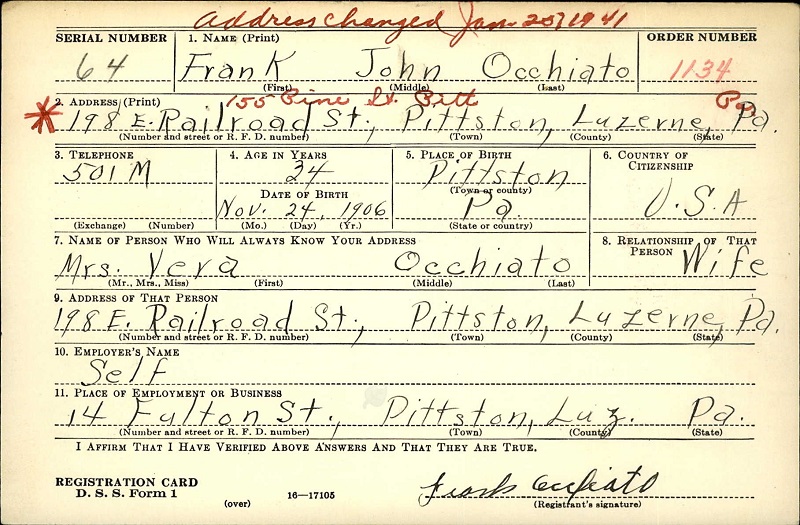 Address changed Jan 25, 1941
SERIAL NUMBER 1. NAME (Print) ORDER NUMBER
64 Frank John Occhiato 1134
(First) (Middle) (Last)
155 Pine St. Pitt Pa
2. ADDRESS (Print)
* 198 E. Railroad St., Pittston, Luzerne, Pa.
(Number and street or R. F. D. number) (Town) (County) (State)
3. TELEPHONE 4. AGE IN YEARS 5. PLACE OF BIRTH 6. COUNTRY OF CITIZENSHIP
501 M 34 Pittston
(Town or county)
DATE OF BIRTH
Nov. 24, 1906 Pa. U.S.A
(Exchange) (Number) (Mo.) (Day) (Yr.) (State or country)
7. NAME OF PERSON WHO WILL ALWAYS KNOW YOUR ADDRESS 8. RELATIONSHIP OF THAT PERSON
Mrs. Vera Occhiato Wife
(Mr., Mrs., Miss) (First) (Middle) (Last)
9. ADDRESS OF THAT PERSON
198 E. Railroad St., Pittston, Luzerne, Pa.
(Number and street or R. F. D. number) (Town) (County) (State)
10. EMPLOYER'S NAME
Self
11. PLACE OF EMPLOYMENT OR BUSINESS
14 Fulton St., Pittston, Luz. Pa.
(Number and street or R. F. D. number) (Town) (County) (State)
I AFFIRM THAT I HAVE VERIFIED ABOVE ANSWERS AND THAT THEY ARE TRUE.
REGISTRATION CARD
D. S. S. Form 1
(over) 16—17105
Frank Occhiato
(Registrant's signature)